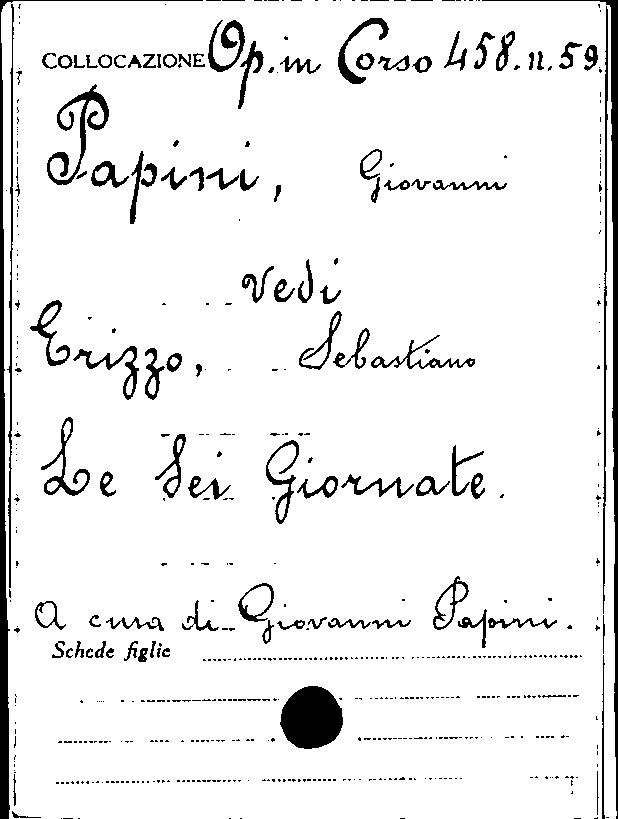 COLLOCAZIONE Op. in Corso 458. n. 59.
Papini, Giovanni
vedi
Erizzo, Sebastiano
Le Sei Giornate.
A cura di Giovanni Papini.
Schede figlie